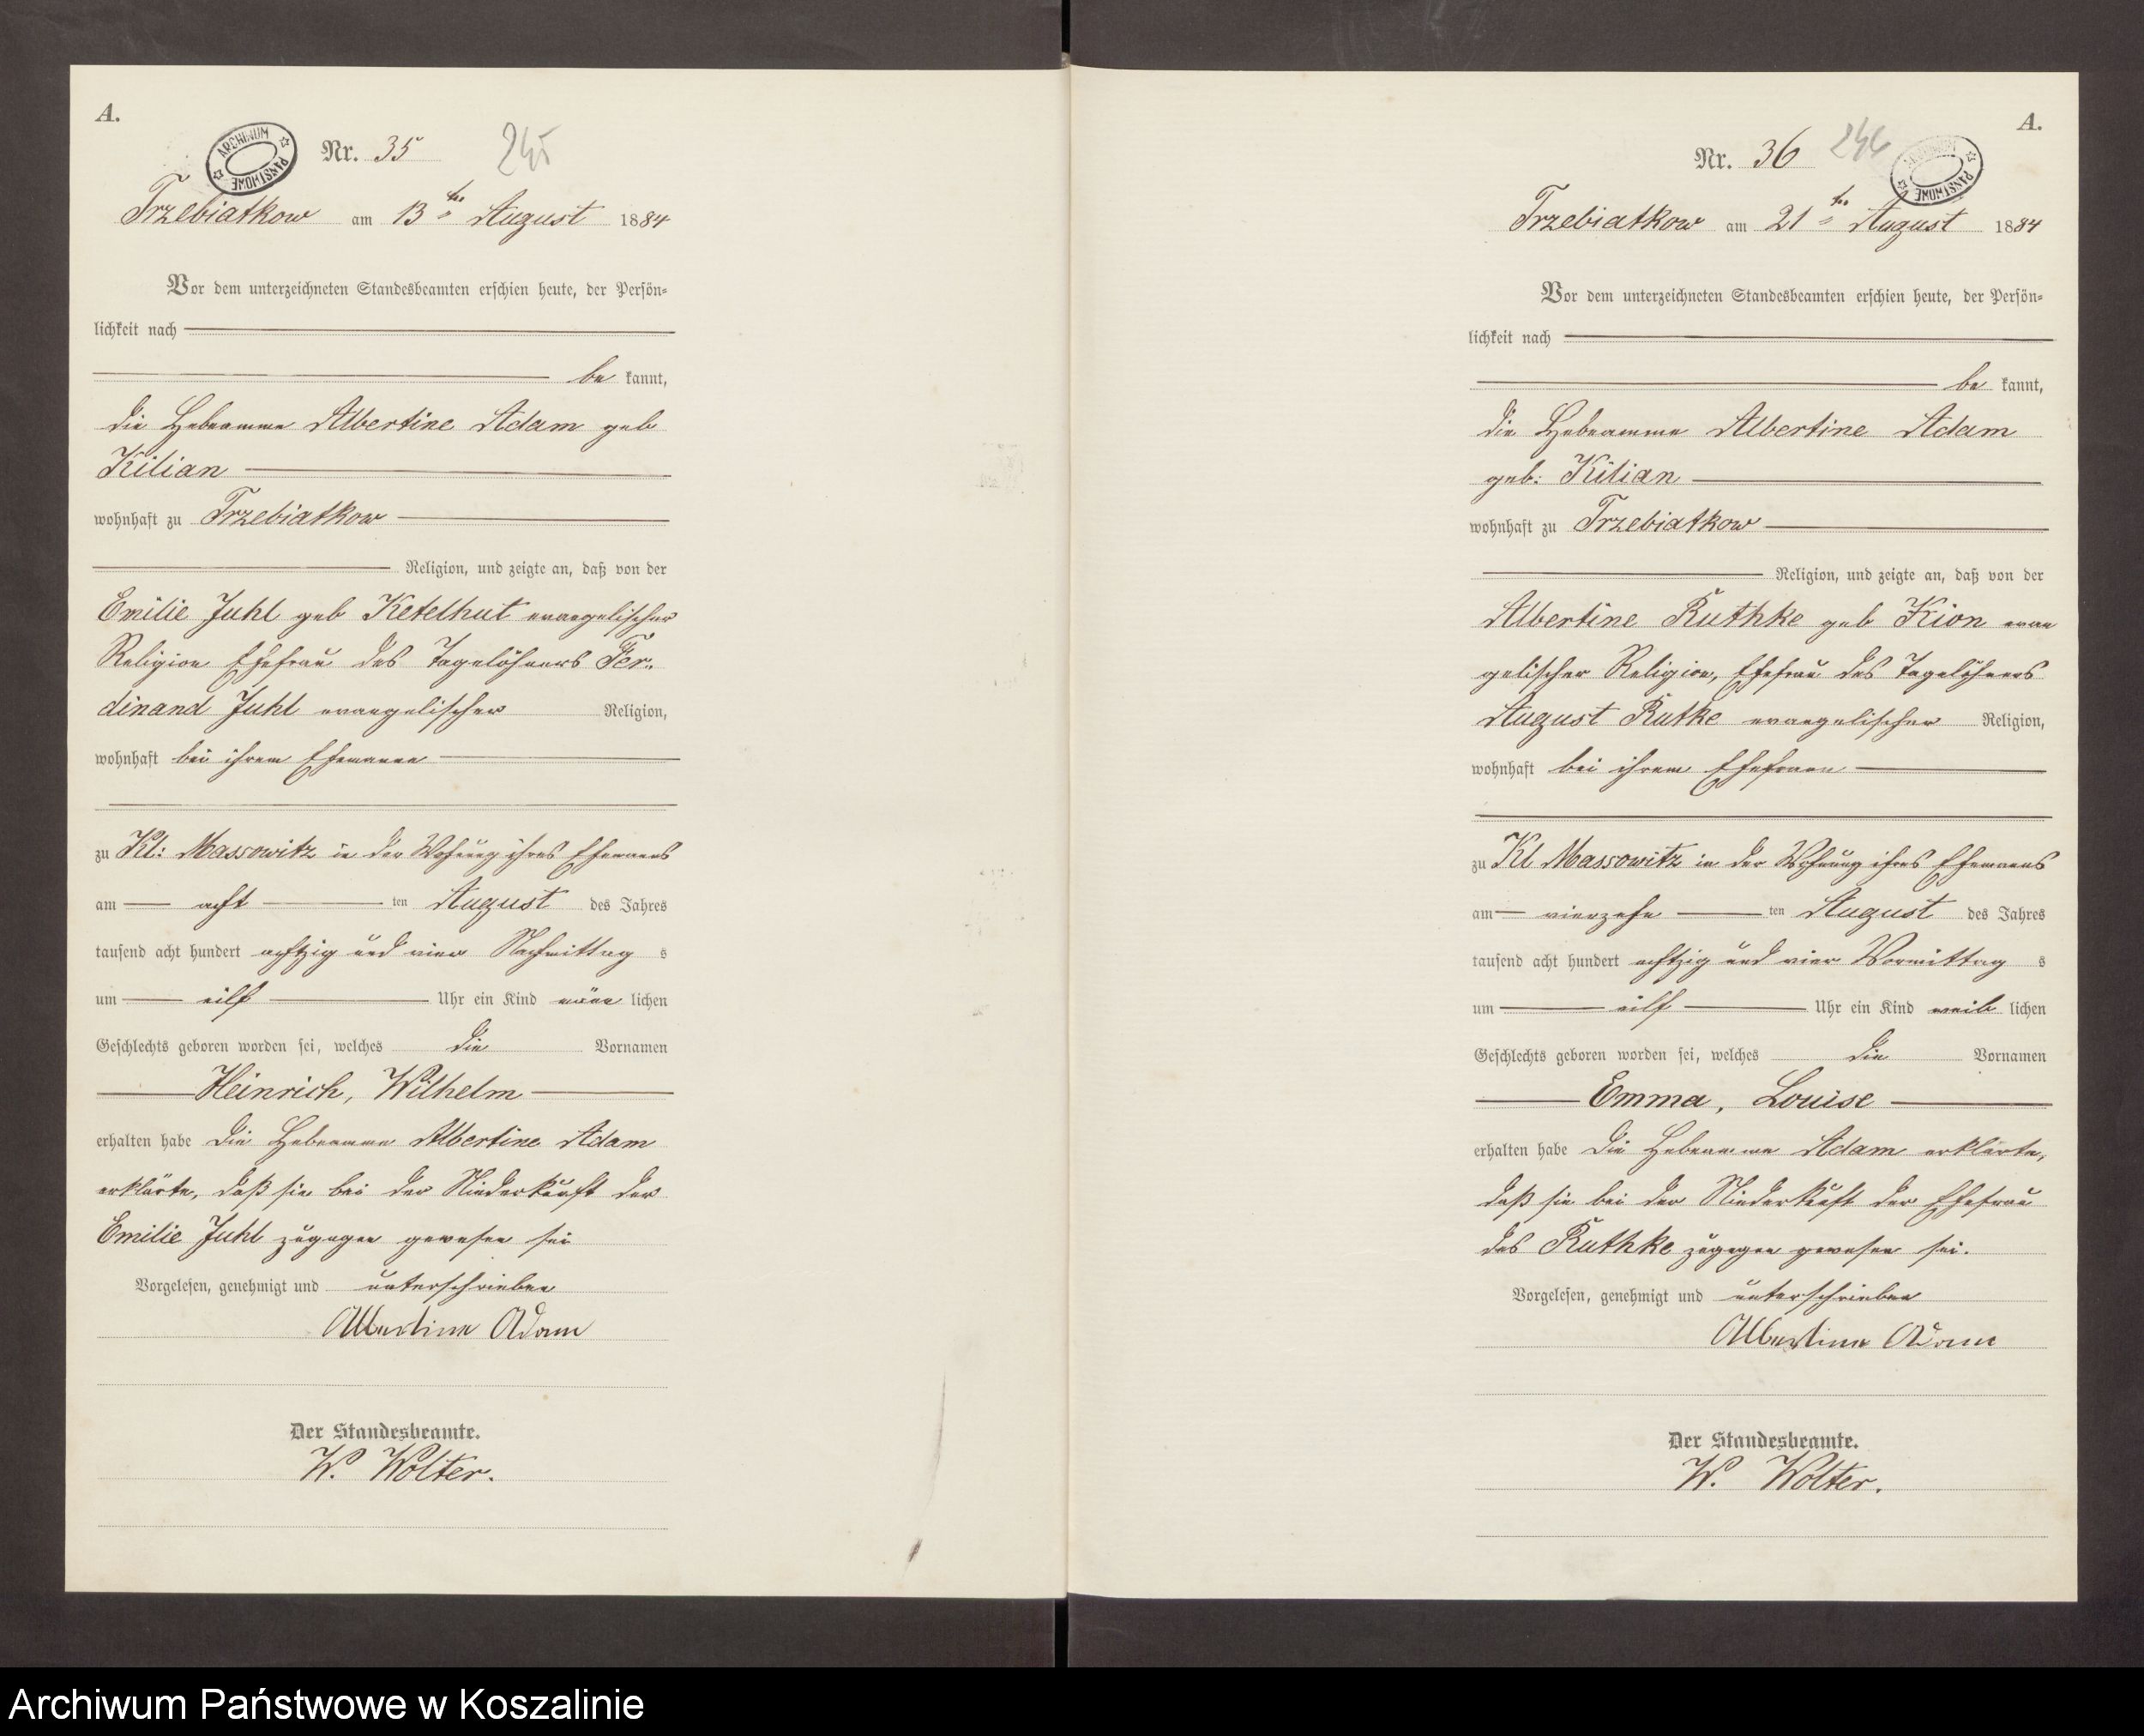 A.
ARCHIWUM PAŃSTWOWE
Nr. 35
245
Trzebiatkow am 13ten August 1884
Vor dem unterzeichneten Standesbeamten erschien heute, der Persön-
lichkeit nach
be kannt,
die Hebeamme Albertine Adam geb
Kilian
wohnhaft zu Trzebiatkow
Religion, und zeigte an, daß von der
Emilie Juhl geb Ketelhut evangelischer
Religion Ehefrau des Tagelöhners Fer-
dinand Juhl evangelischer Religion,
wohnhaft bei ihrem Ehemanne
zu Kl: Massowitz in der Wohnung ihres Ehemanns
am acht ten August des Jahres
tausend acht hundert achtzig und vier Nachmittag s
um eilf Uhr ein Kind männ lichen
Geschlechts geboren worden sei, welches die Vornamen
Heinrich, Wilhelm
erhalten habe Die Hebeamme Albertine Adam
erklärte, daß sie bei der Niederkunft der
Emilie Juhl zugegen gewesen sei
Vorgelesen, genehmigt und unterschrieben
Albertine Adam
Der Standesbeamte.
W. Wolter.
A.
Nr. 36
246
ARCHIWUM PAŃSTWOWE
Trzebiatkow am 21ten August 1884
Vor dem unterzeichneten Standesbeamten erschien heute, der Persön-
lichkeit nach
be kannt,
die Hebeamme Albertine Adam
geb: Kilian
wohnhaft zu Trzebiatkow
Religion, und zeigte an, daß von der
Albertine Ruthke geb Krion evan
gelischer Religion, Ehefrau des Tagelöhners
August Rutke evangelischer Religion,
wohnhaft bei ihrem Ehefrauen
zu Kl Massowitz in der Wohnung ihres Ehemanns
am vierzehn ten August des Jahres
tausend acht hundert achtzig und vier Vormittag s
um eilf Uhr ein Kind weib lichen
Geschlechts geboren worden sei, welches die Vornamen
Emma, Louise
erhalten habe Die Hebeamme Adam erklärte,
daß sie bei der Niederkuft der Ehefrau
des Ruthke zugegen gewesen sei.
Vorgelesen, genehmigt und unterschrieben
Albertine Adam
Der Standesbeamte.
W. Wolter.
Archiwum Państwowe w Koszalinie